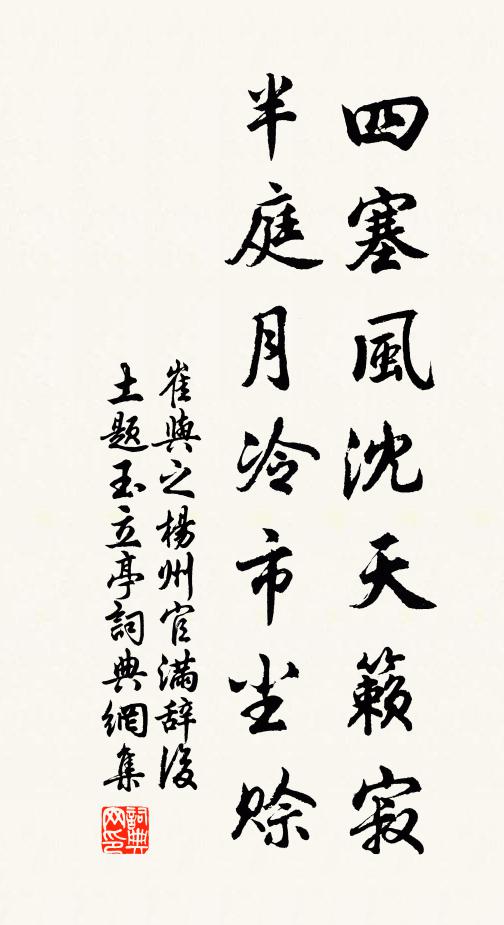 四塞風沈天籟寂
半庭月冷市尘賒
崔與之楊州官满辞後
土題玉立亭詞典網集
詞典网印